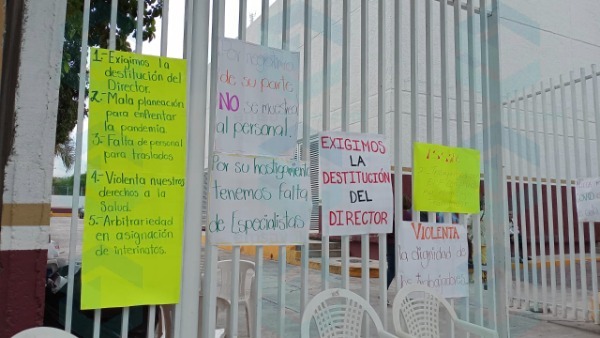 1.- Exigimos la
destitución del
Director.
2.- Mala planeación
para enfrentar
la pandemia
3.- Falta de personal
para traslados
4.- Violenta nuestros
derechos a la
Salud.
5.- Arbitrariedad
en asignación
de interinatos.
Por
de su parte
NO se muestra
al personal.
Por su hostigamiento
tenemos falta
de Especialistas
EXIGIMOS
LA
DESTITUCIÓN
DEL
DIRECTOR
VIOLENTA
la dignidad de
los trabajadores